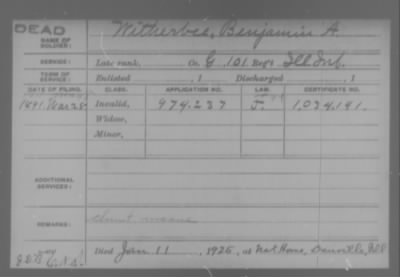 DEAD
NAME OF SOLDIER: Witherbee, Benjamin A.
SERVICE: Late rank, Co. G, 101 Reg't Ill Inf.
TERM OF SERVICE: Enlisted , 1 Discharged , 1
DATE OF FILING. CLASS. APPLICATION NO. LAW. CERTIFICATE NO.
1891, Mar 28 Invalid, 974.237 J. 1,034,191.
Widow,
Minor,
ADDITIONAL SERVICES:
REMARKS:
Died Jan 11, 1925, at Nat Home, Danville, Ill